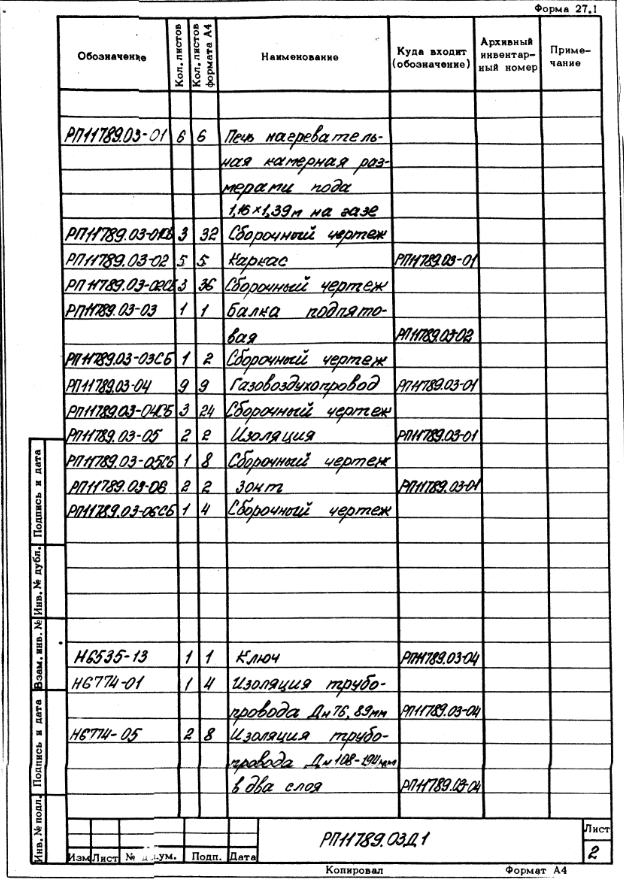 Форма 27.1
Обозначение Кол. листов Кол. листов формата А4 Наименование Куда входит (обозначение) Архивный инвентарный номер Примечание
РП11789.03-01 6 6 Печь нагреватель-
ная камерная раз-
мерами пода
1,16×1,39м на газе
РП11789.03-01СБ 3 32 Сборочный чертеж
РП11789.03-02 5 5 Каркас РП11789.03-01
РП11789.03-02СБ 3 36 Сборочный чертеж
РП11789.03-03 1 1 Балка подпято-
вая РП11789.03-02
РП11789.03-03СБ 1 2 Сборочный чертеж
РП11789.03-04 9 9 Газовоздухопровод РП11789.03-01
РП11789.03-04СБ 3 24 Сборочный чертеж
РП11789.03-05 2 2 Изоляция РП11789.03-01
РП11789.03-05СБ 1 8 Сборочный чертеж
РП11789.03-06 2 2 Зонт РП11789.03-01
РП11789.03-06СБ 1 4 Сборочный чертеж
Н6535-13 1 1 Ключ РП11789.03-04
Н6774-01 1 4 Изоляция трубо-
провода Дн 76, 89мм РП11789.03-04
Н6774-05 2 8 Изоляция трубо-
провода Дн 108-194мм
в два слоя РП11789.03-04
Инв. № подл. Подпись и дата Взам. инв. № Инв. № дубл. Подпись и дата
Изм Лист № докум. Подп. Дата
РП11789.03Д1
Лист
2
Копировал Формат А4